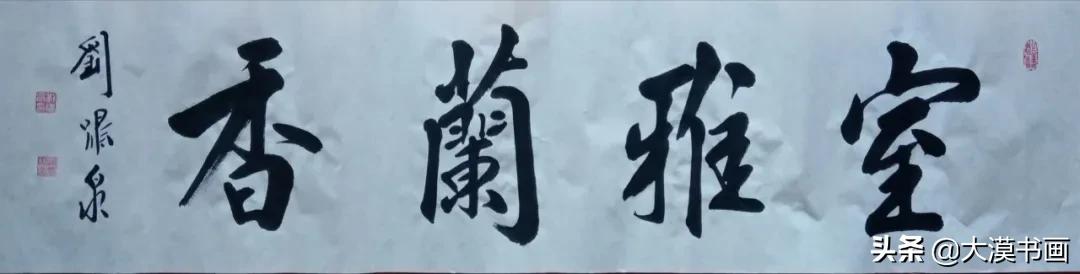 室雅蘭香
劉 泉
头条 @大漠书画